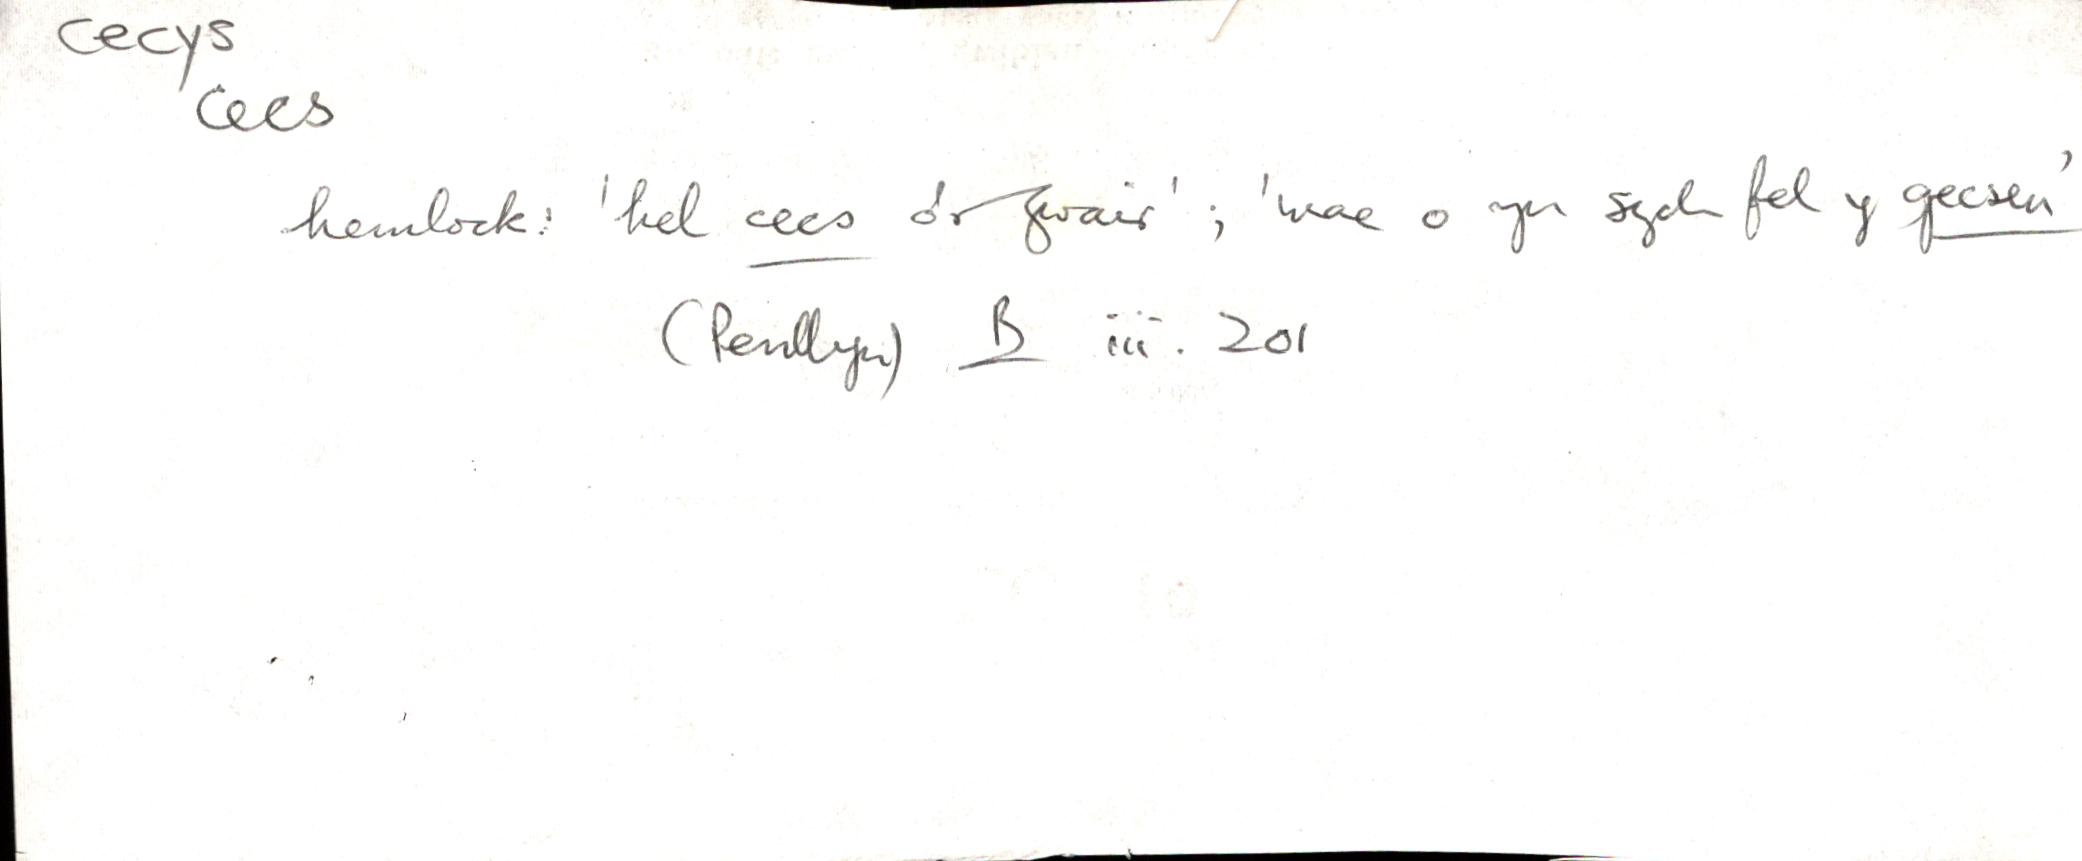 cecys
cecs
hemlock: 'hel cecs o'r gwair'; 'mae o yn sych fel y gecsen'
(Penllyn) B iii. 201